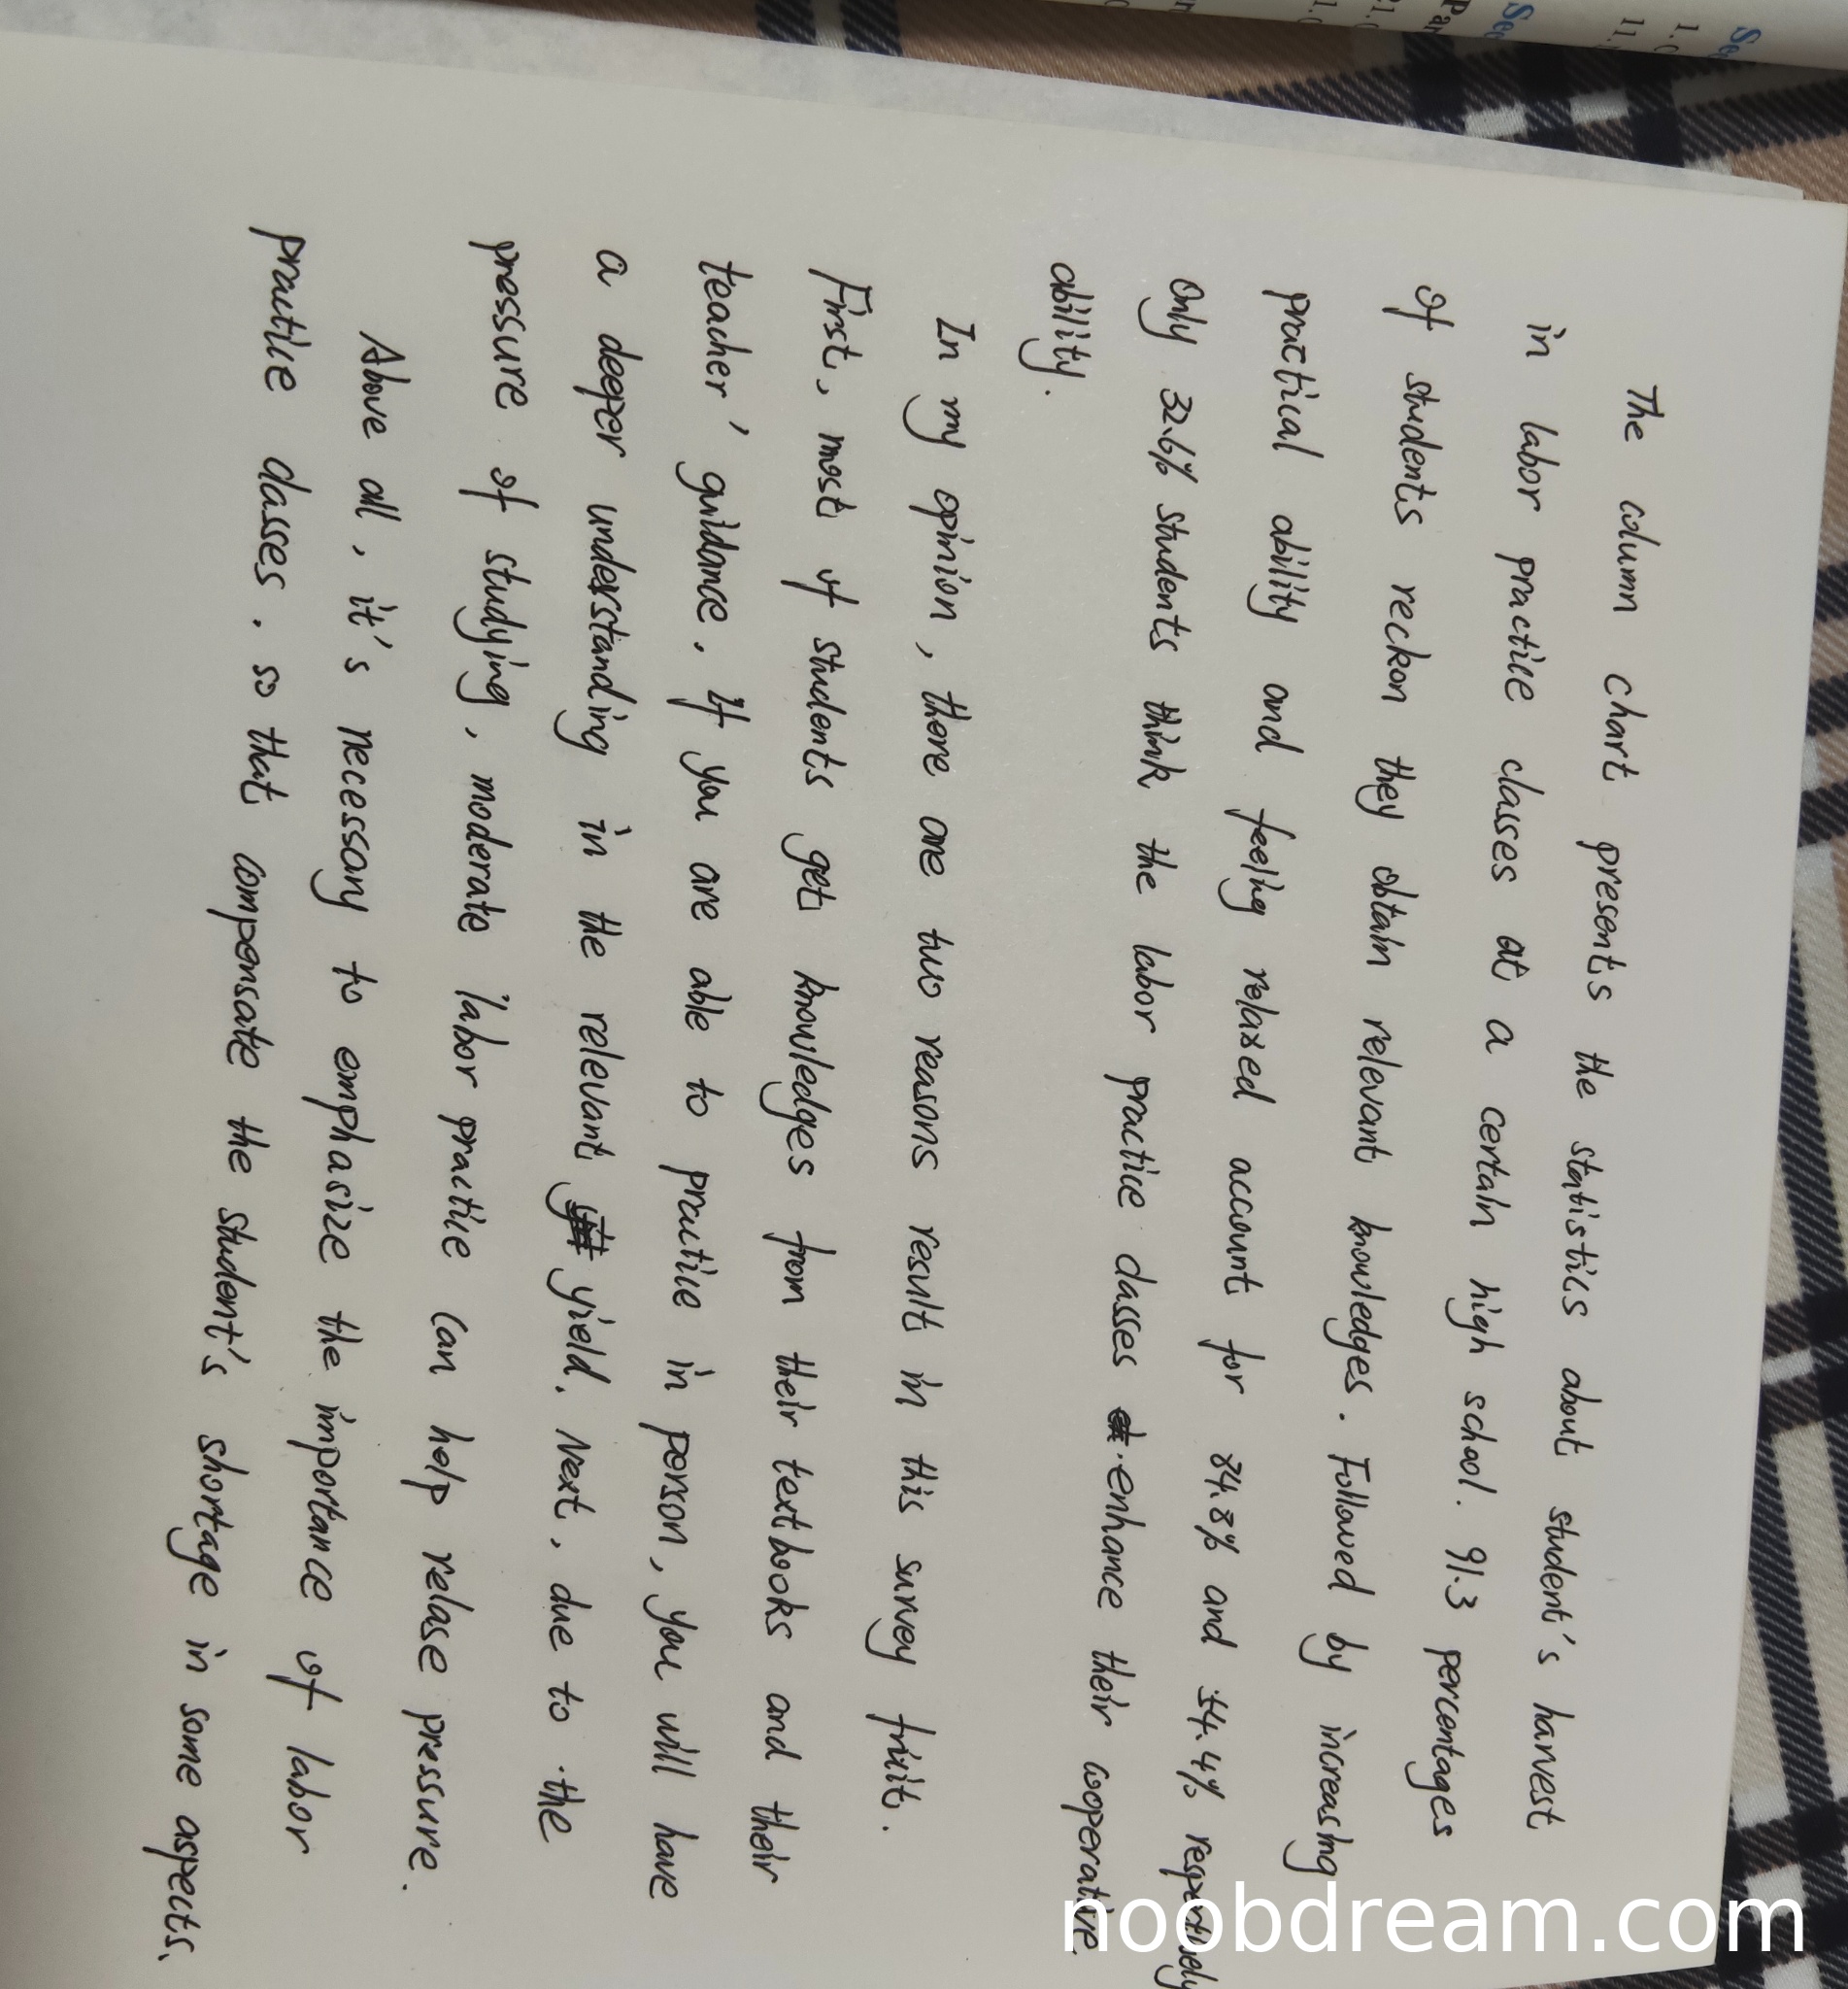 The column chart presents the statistics about student's harvest
in labor practice classes at a certain high school. 91.3 percentages
of students reckon they obtain relevant knowledges. Followed by increasing
practical ability and feeling relaxed account for 84.8% and 54.4% respectively
Only 32.6% students think the labor practice classes enhance their cooperative
ability.
In my opinion, there are two reasons result in this survey fruit.
First, most of students get knowledges from their textbooks and their
teacher' guidance. If you are able to practice in person, you will have
a deeper understanding in the relevant yield. Next, due to the
pressure of studying, moderate labor practice can help relase pressure.
Above all, it's necessary to emphasize the importance of labor
practice classes. so that compensate the student's shortage in some aspects.
noobdream.com